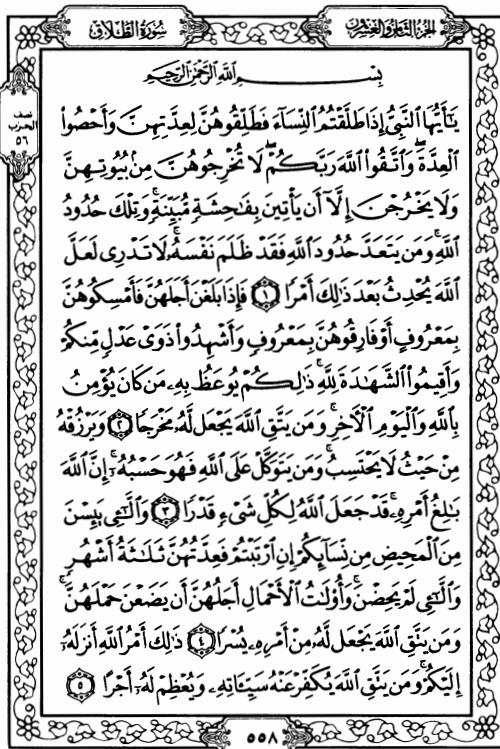 الجزء الثامن والعشرون
سورة الطلاق
نصف
الحزب
٥٦
بِسْمِ اللَّهِ الرَّحْمَٰنِ الرَّحِيمِ
يَٰٓأَيُّهَا ٱلنَّبِىُّ إِذَا طَلَّقْتُمُ ٱلنِّسَآءَ فَطَلِّقُوهُنَّ لِعِدَّتِهِنَّ وَأَحْصُوا۟
ٱلْعِدَّةَ ۖ وَٱتَّقُوا۟ ٱللَّهَ رَبَّكُمْ ۖ لَا تُخْرِجُوهُنَّ مِنۢ بُيُوتِهِنَّ
وَلَا يَخْرُجْنَ إِلَّآ أَن يَأْتِينَ بِفَٰحِشَةٍ مُّبَيِّنَةٍ ۚ وَتِلْكَ حُدُودُ
ٱللَّهِ ۚ وَمَن يَتَعَدَّ حُدُودَ ٱللَّهِ فَقَدْ ظَلَمَ نَفْسَهُۥ ۚ لَا تَدْرِى لَعَلَّ
ٱللَّهَ يُحْدِثُ بَعْدَ ذَٰلِكَ أَمْرًا ١ فَإِذَا بَلَغْنَ أَجَلَهُنَّ فَأَمْسِكُوهُنَّ
بِمَعْرُوفٍ أَوْ فَارِقُوهُنَّ بِمَعْرُوفٍ وَأَشْهِدُوا۟ ذَوَىْ عَدْلٍ مِّنكُمْ
وَأَقِيمُوا۟ ٱلشَّهَٰدَةَ لِلَّهِ ۚ ذَٰلِكُمْ يُوعَظُ بِهِۦ مَن كَانَ يُؤْمِنُ
بِٱللَّهِ وَٱلْيَوْمِ ٱلْءَاخِرِ ۚ وَمَن يَتَّقِ ٱللَّهَ يَجْعَل لَّهُۥ مَخْرَجًا ٢ وَيَرْزُقْهُ
مِنْ حَيْثُ لَا يَحْتَسِبُ ۚ وَمَن يَتَوَكَّلْ عَلَى ٱللَّهِ فَهُوَ حَسْبُهُۥٓ ۚ إِنَّ ٱللَّهَ
بَٰلِغُ أَمْرِهِۦ ۚ قَدْ جَعَلَ ٱللَّهُ لِكُلِّ شَىْءٍ قَدْرًا ٣ وَٱلَّٰٓـِٔى يَئِسْنَ
مِنَ ٱلْمَحِيضِ مِن نِّسَآئِكُمْ إِنِ ٱرْتَبْتُمْ فَعِدَّتُهُنَّ ثَلَٰثَةُ أَشْهُرٍ
وَٱلَّٰٓـِٔى لَمْ يَحِضْنَ ۚ وَأُو۟لَٰتُ ٱلْأَحْمَالِ أَجَلُهُنَّ أَن يَضَعْنَ حَمْلَهُنَّ ۚ
وَمَن يَتَّقِ ٱللَّهَ يَجْعَل لَّهُۥ مِنْ أَمْرِهِۦ يُسْرًا ٤ ذَٰلِكَ أَمْرُ ٱللَّهِ أَنزَلَهُۥٓ
إِلَيْكُمْ ۚ وَمَن يَتَّقِ ٱللَّهَ يُكَفِّرْ عَنْهُ سَيِّـَٔاتِهِۦ وَيُعْظِمْ لَهُۥٓ أَجْرًا ٥
٥٥٨